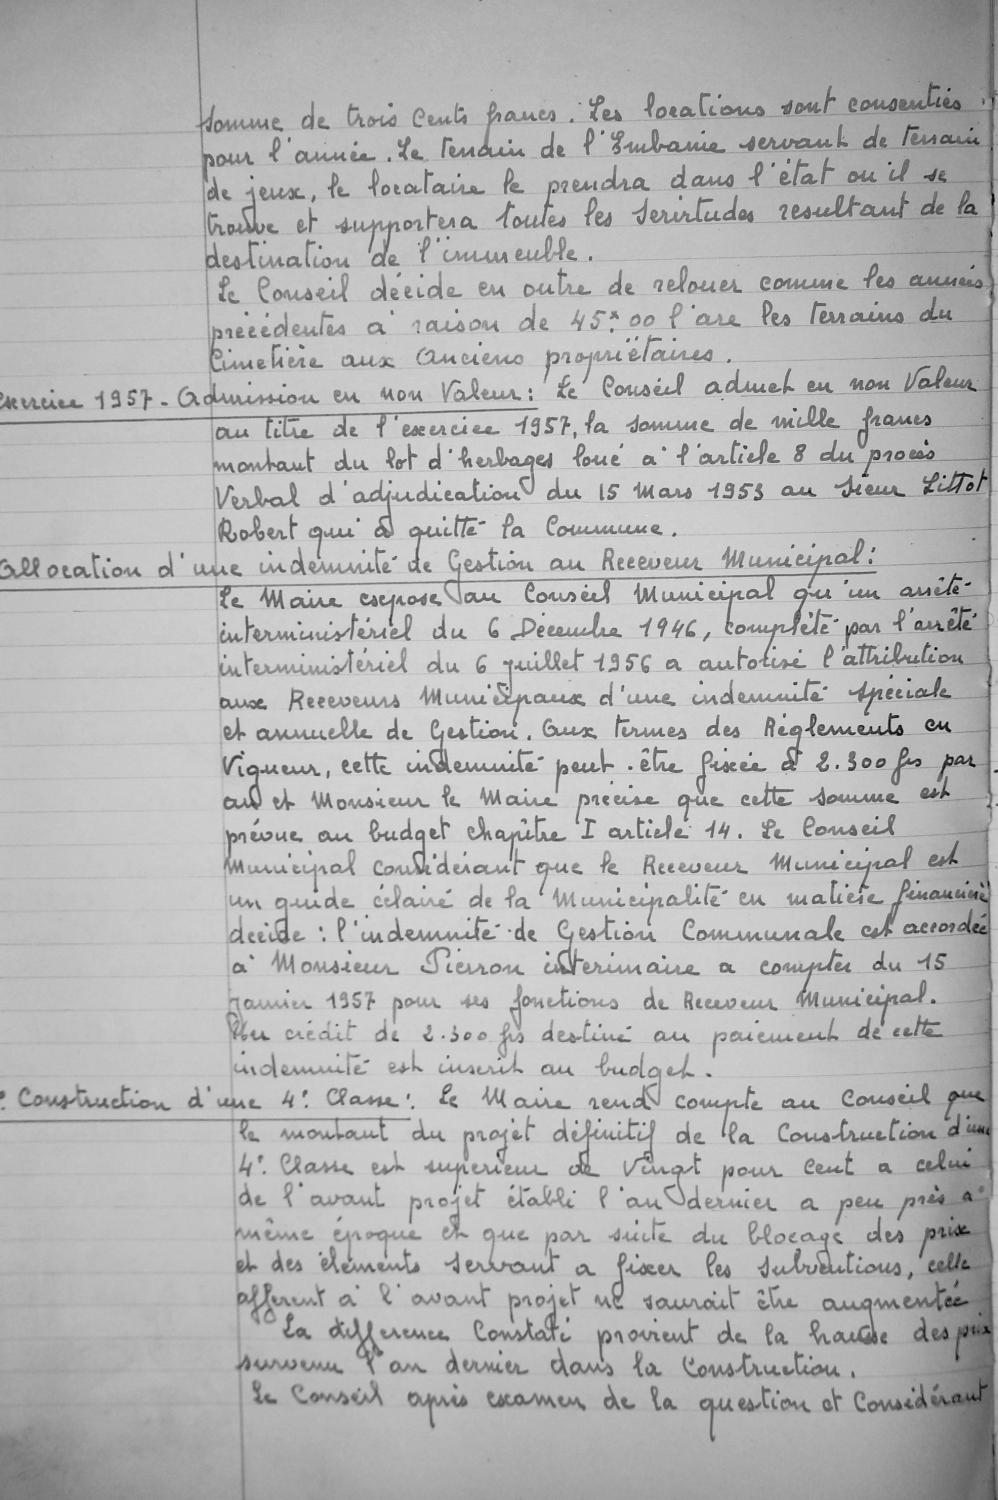 somme de trois Cents francs. Les locations sont consenties
pour l'année. Le terrain de l'Embanie servant de terrain
de jeux, le locataire le prendra dans l'état ou il se
trouve et supportera toutes les Servitudes resultant de la
destination de l'immeuble.
Le Conseil décide en outre de relouer comme les années
précédentes à raison de 45.00 l'are les terrains du
Cimetière aux Anciens propriétaires.
Exercice 1957 - Admission en non Valeur : Le Conseil admet en non Valeur
au titre de l'exercice 1957, la somme de mille francs
montant du lot d'herbages loué à l'article 8 du procès
Verbal d'adjudication du 15 Mars 1953 au Sieur Littot
Robert qui a quitté la Commune.
Allocation d'une indemnité de Gestion au Receveur Municipal :
Le Maire expose au Conseil Municipal qu'un arrêté
interministériel du 6 Décembre 1946, complété par l'arrêté
interministériel du 6 juillet 1956 a autorisé l'attribution
aux Receveurs Municipaux d'une indemnité spéciale
et annuelle de Gestion. Aux termes des Réglements en
Vigueur, cette indemnité peut être fixée à 2.300 frs par
an et Monsieur le Maire précise que cette somme est
prévue au budget chapître I article 14. Le Conseil
Municipal considérant que le Receveur Municipal est
un guide éclairé de la Municipalité en matière financière
decide : l'indemnité de Gestion Communale est accordée
à Monsieur Pierron interimaire a compter du 15
Janvier 1957 pour ses fonctions de Receveur Municipal.
Un crédit de 2.300 frs destiné au paiement de cette
indemnité est inscrit au budget.
Construction d'une 4e Classe : Le Maire rend compte au Conseil que
le montant du projet définitif de la Construction d'une
4e Classe est superieur de Vingt pour Cent a celui
de l'avant projet établi l'an dernier a peu près à
même époque et que par suite du blocage des prix
et des éléments servant a fixer les subventions, celle
afferent à l'avant projet ne saurait être augmentée
La difference Constaté provient de la hausse des prix
survenu l'an dernier dans la Construction.
Le Conseil après examen de la question et Considérant